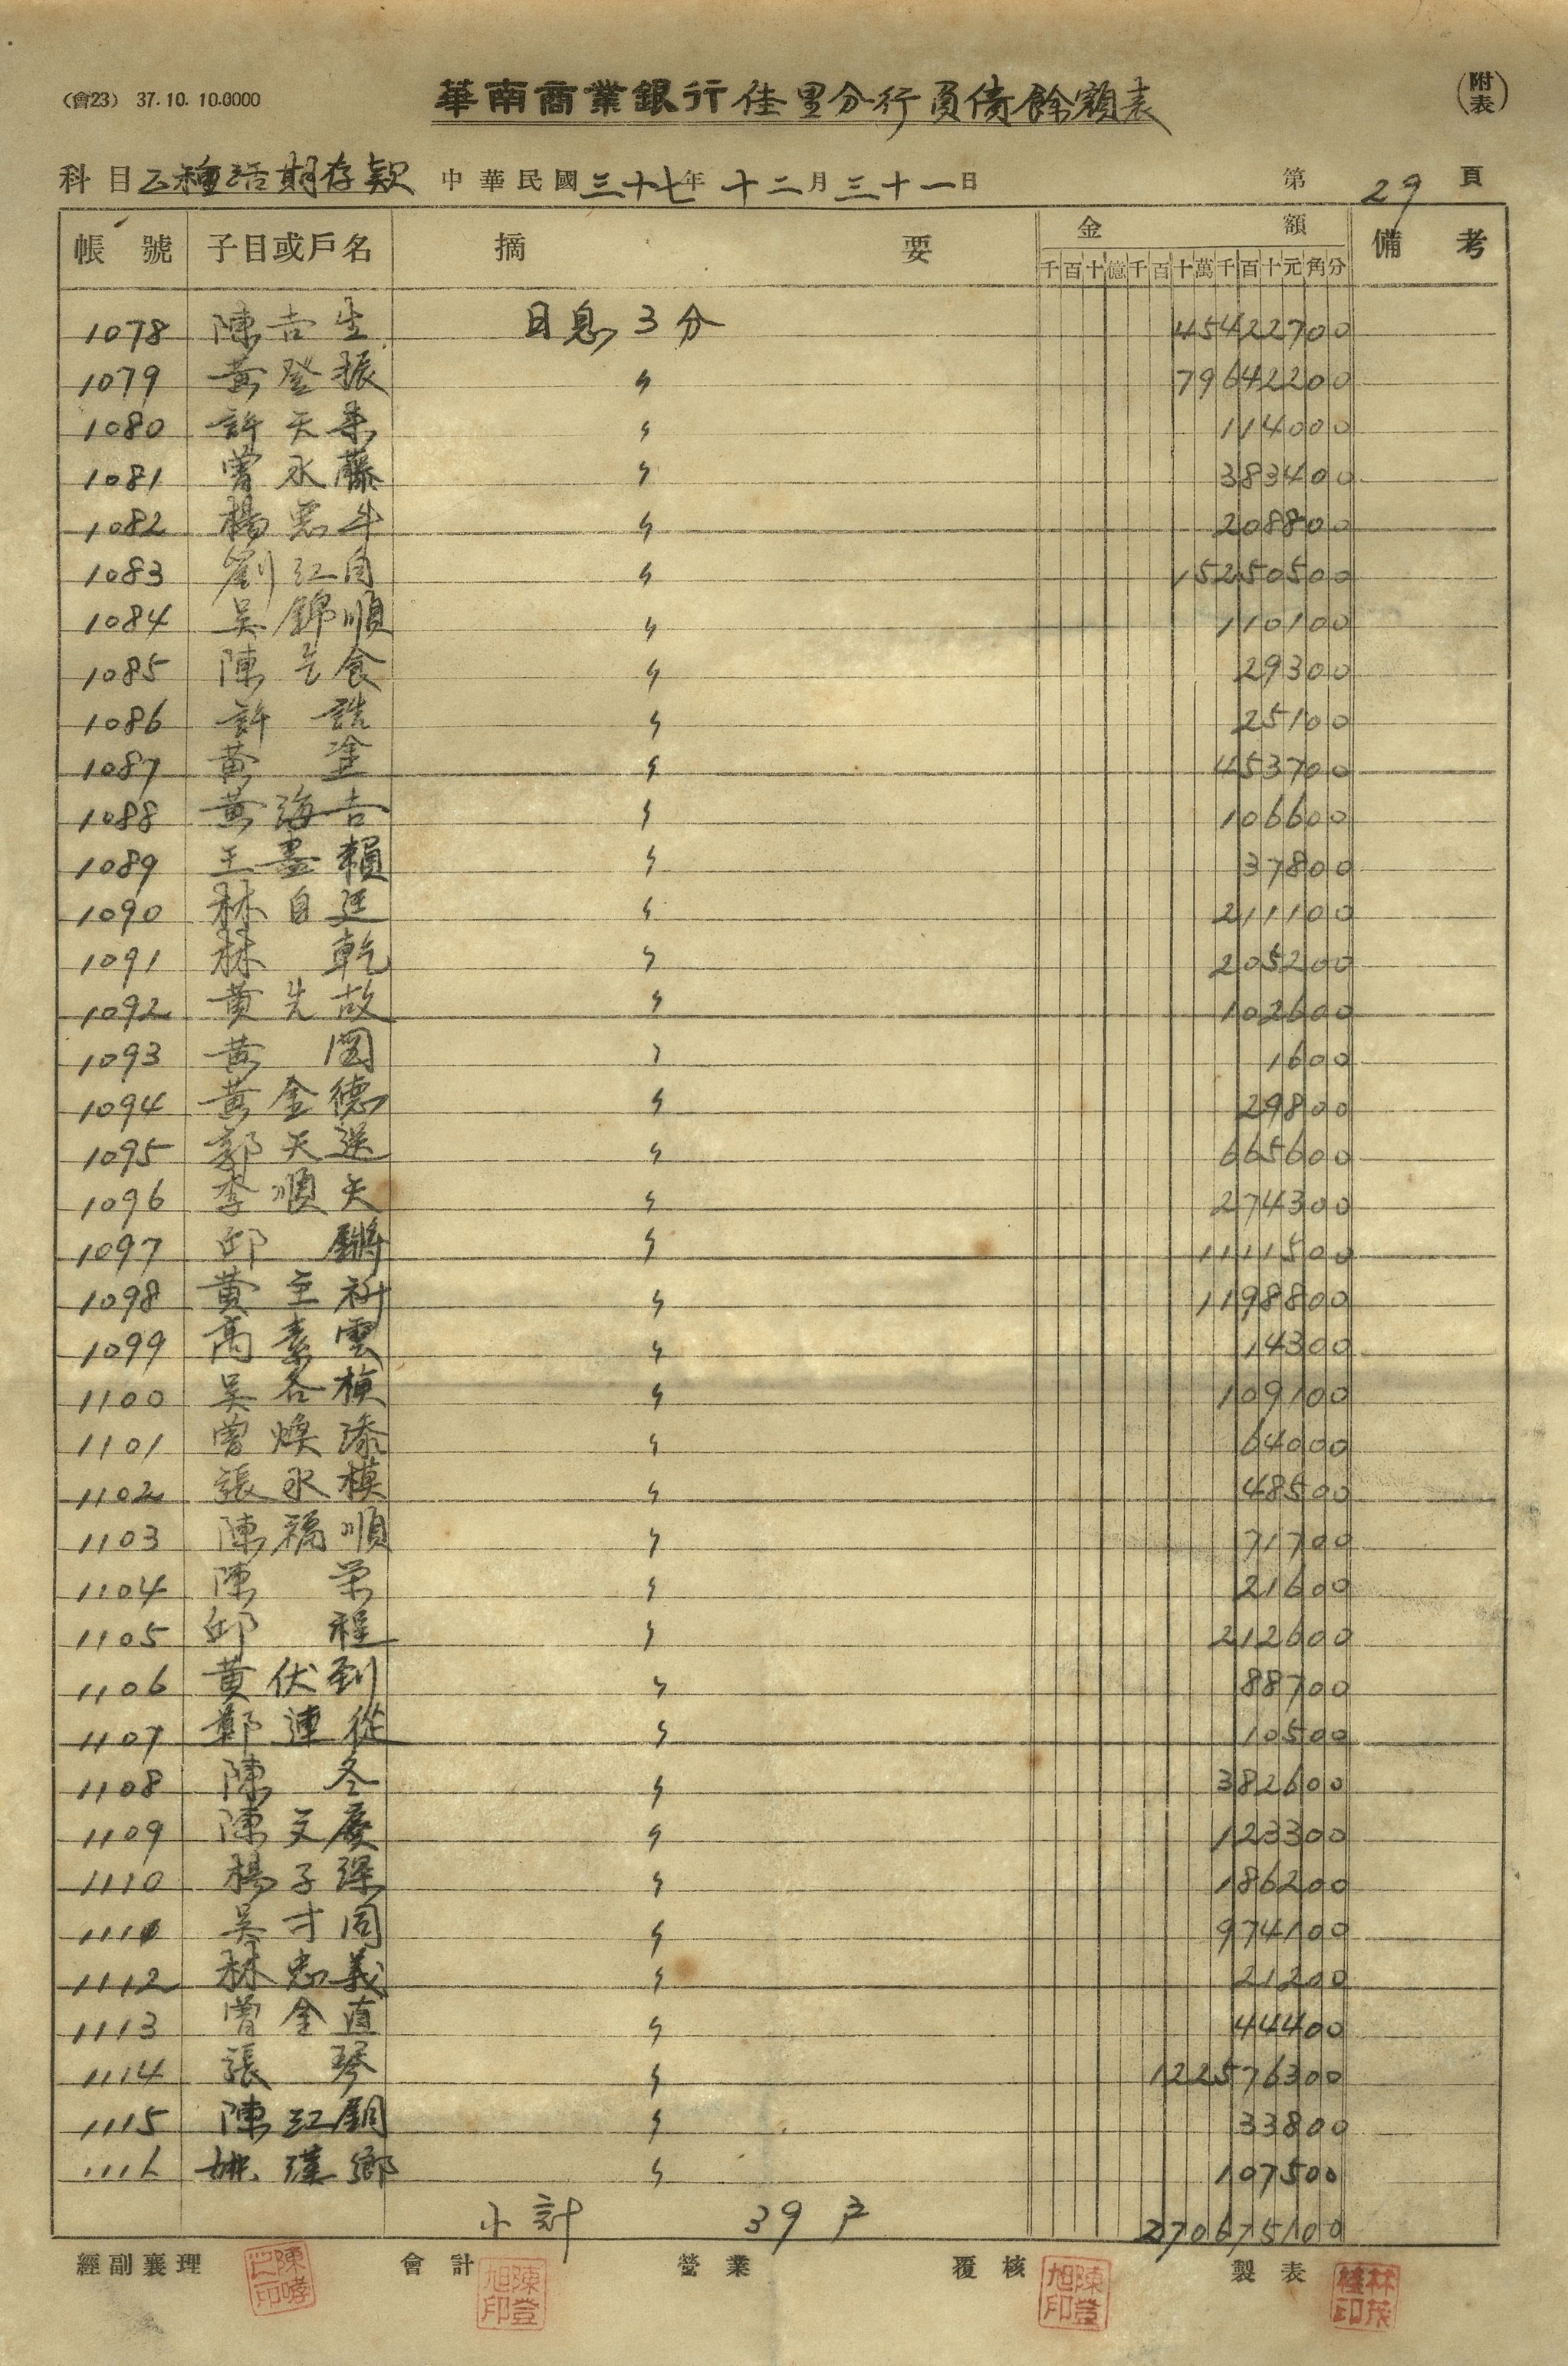 (會23) 37.10.10.6000
華南商業銀行佳里分行負債餘額表
(附表)
科目 乙種活期存款 中華民國三十七年十二月三十一日 第29頁
帳號 子目或戶名 摘要 金額 備考
千百十億千百十萬千百十元角分
1078 陳吉生 日息3分 45422700
1079 黃登振 〃 79642200
1080 許天 〃 114000
1081 曾水藤 〃 383400
1082 楊惡牛 〃 208800
1083 劉江自 〃 15250500
1084 吳錦順 〃 110100
1085 陳乞食 〃 29300
1086 許誥 〃 25100
1087 黃塗 〃 453700
1088 黃海吉 〃 106600
1089 王墨賴 〃 37800
1090 林自廷 〃 211100
1091 林乾 〃 205200
1092 黃先故 〃 102600
1093 黃 〃 1600
1094 黃金德 〃 29800
1095 郭天送 〃 665600
1096 李順天 〃 274300
1097 邱 〃 1111500
1098 黃主 〃 1198800
1099 高素雲 〃 14300
1100 吳各楨 〃 109100
1101 曾煥添 〃 64000
1102 張永模 〃 48500
1103 陳福順 〃 71700
1104 陳榮 〃 21600
1105 邱程 〃 212600
1106 黃伏到 〃 88700
1107 鄭連從 〃 10500
1108 陳冬 〃 382600
1109 陳文慶 〃 123300
1110 楊子深 〃 186200
1111 吳才同 〃 974100
1112 林忠義 〃 21200
1113 曾金直 〃 44400
1114 張琴 〃 122576300
1115 陳江銅 〃 33800
1116 姚漢鄉 〃 107500
小計 39戶 270675100
經副襄理 會計 營業 覆核 製表
陳登旭印 陳登旭印 林茂桂印